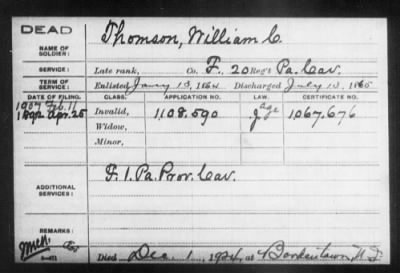 DEAD
NAME OF SOLDIER: Thomson, William C.
SERVICE: Late rank, Co. F. 20 Reg't Pa. Cav.
TERM OF SERVICE: Enlisted Jany 13, 1864 Discharged July 13, 1865
DATE OF FILING. CLASS. APPLICATION NO. LAW. CERTIFICATE NO.
1907 Feb. 11
1892 Apr. 25 Invalid, 1108.590 Age 1067,676
Widow,
Minor,
ADDITIONAL SERVICES: F. 1. Pa. Prov. Cav.
REMARKS:
Died Dec. 1, 1924, at